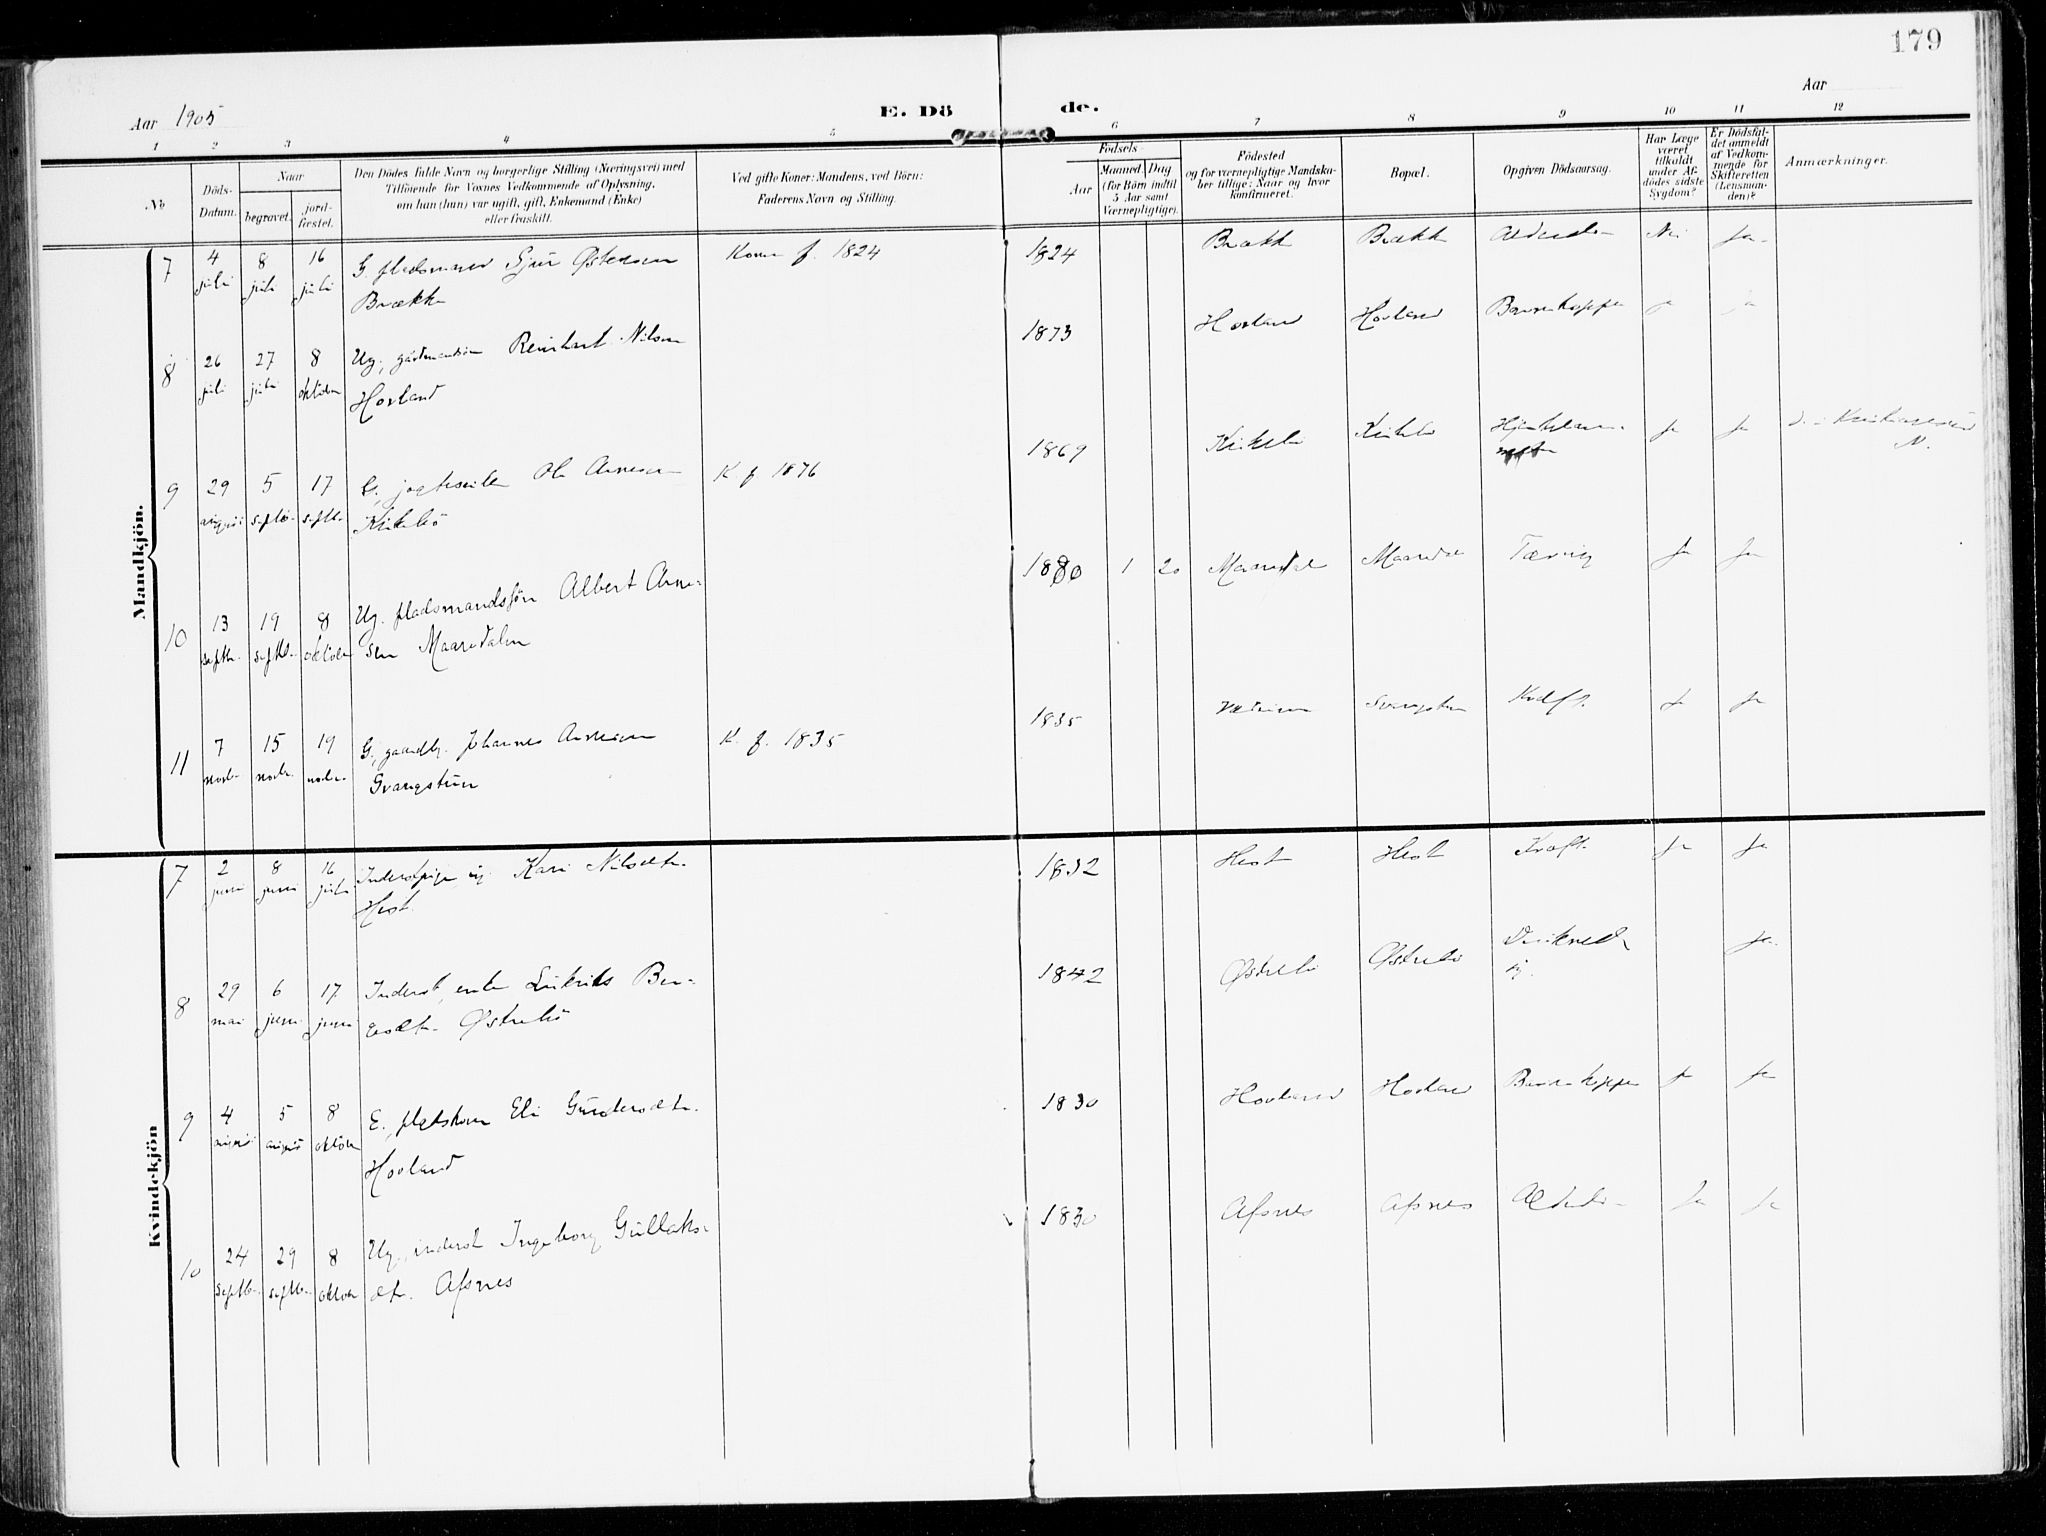 179
Aar 1905
E. Dö
de.
Aar
1 2 3 4 5 6 7 8 9 10 11 12
No
Döds-
Datum.
Naar
begravet.
jord-
fæstet.
Den Dödes fulde Navn og borgerlige Stilling (Næringsvei) med
Tilföiende for Voxnes Vedkommende af Oplysning,
om han (hun) var ugift, gift, Enkemand (Enke)
eller fraskilt.
Ved gifte Koner: Mandens, ved Börn:
Faderens Navn og Stilling.
Födsels-
Aar
Maaned.
Dag
(for Börn indtil
5 Aar samt
Værnepligtige).
Födested
og for værnepligtige Mandska-
ber tillige: Naar og hvor
konfirmeret.
Bopæl.
Opgiven Dödsaarsag.
Har Læge
været
tilkaldt
under Af-
dödes sidste
Sygdom?
Er Dödsfal-
det anmeldt
af Vedkom-
mende for
Skifteretten
(Lensman-
den)?
Anmærkninger.
Mandkjön.
7 4 juli 8 juli 16 juli G. pladsmand Sjur Østensen
Brække
Kone f. 1824 1824 Brække Brække Nei Ja
8 26 juli 27 juli 8 oktober Ug. gårdmandsøn Reinhart Nilsen
Hovland
1873 Hovland Hovland Ja
9 29 august 5 septbr. 17 septbr. G. Ole Arnesen
K. f. 1876 1869 Ja Ja Kristiansund
N.
10 13 septbr. 19 septbr. 8 oktober Ug. pladsmandssøn Albert Arne-
sen Maaredalen
1880 1 20 Maaredal Maaredal Tæring Ja Ja
11 7 novbr. 15 novbr. 19 novbr. G. gaardbr. Johannes Arnesen
Svangstun
K. f. 1835 1835 Svangstun Kræft Ja Ja
Kvindekjön
7 2 juni 8 juni 16 juli Inderstpige ug. Kari Nilsdtr.
Hest
1832 Hest Hest Kræft Ja Ja
8 29 mai 6 juni 17 juni Inderst, enke
Østrebø
1842 Østrebø Østrebø Ja
9 4 august 5 august 8 oktober E. pladskone Eli Gundersdtr.
Hovland
1830 Hovland Hovland Ja Ja
10 24 septbr. 29 septbr. 8 oktober Ug. inderst Ingeborg Gullaks-
dtr. Afsnes
1830 Afsnes Afsnes Ja Ja